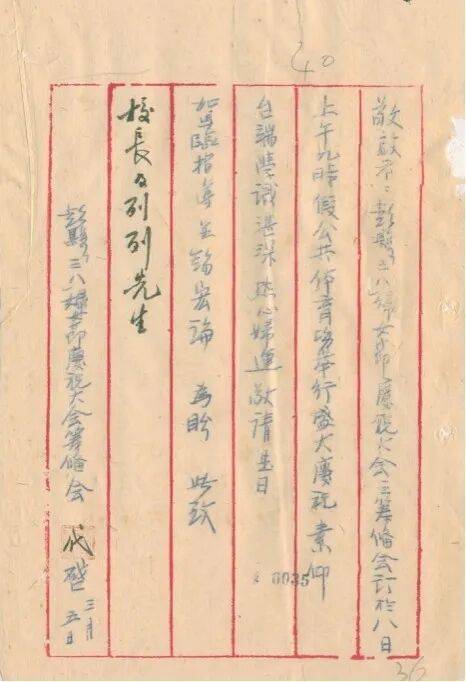 40
敬啟者:彭縣三八婦女節慶祝大会籌備会訂於八日
上午九時假公共体育場举行盛大慶祝 素仰
台端學識湛深热心婦運敬請是日
如时臨指導並錫宏論 為盼 此致
校長及列列先生
彭縣三八婦女節慶祝大会籌備会
啟
三月
五日
0035
36